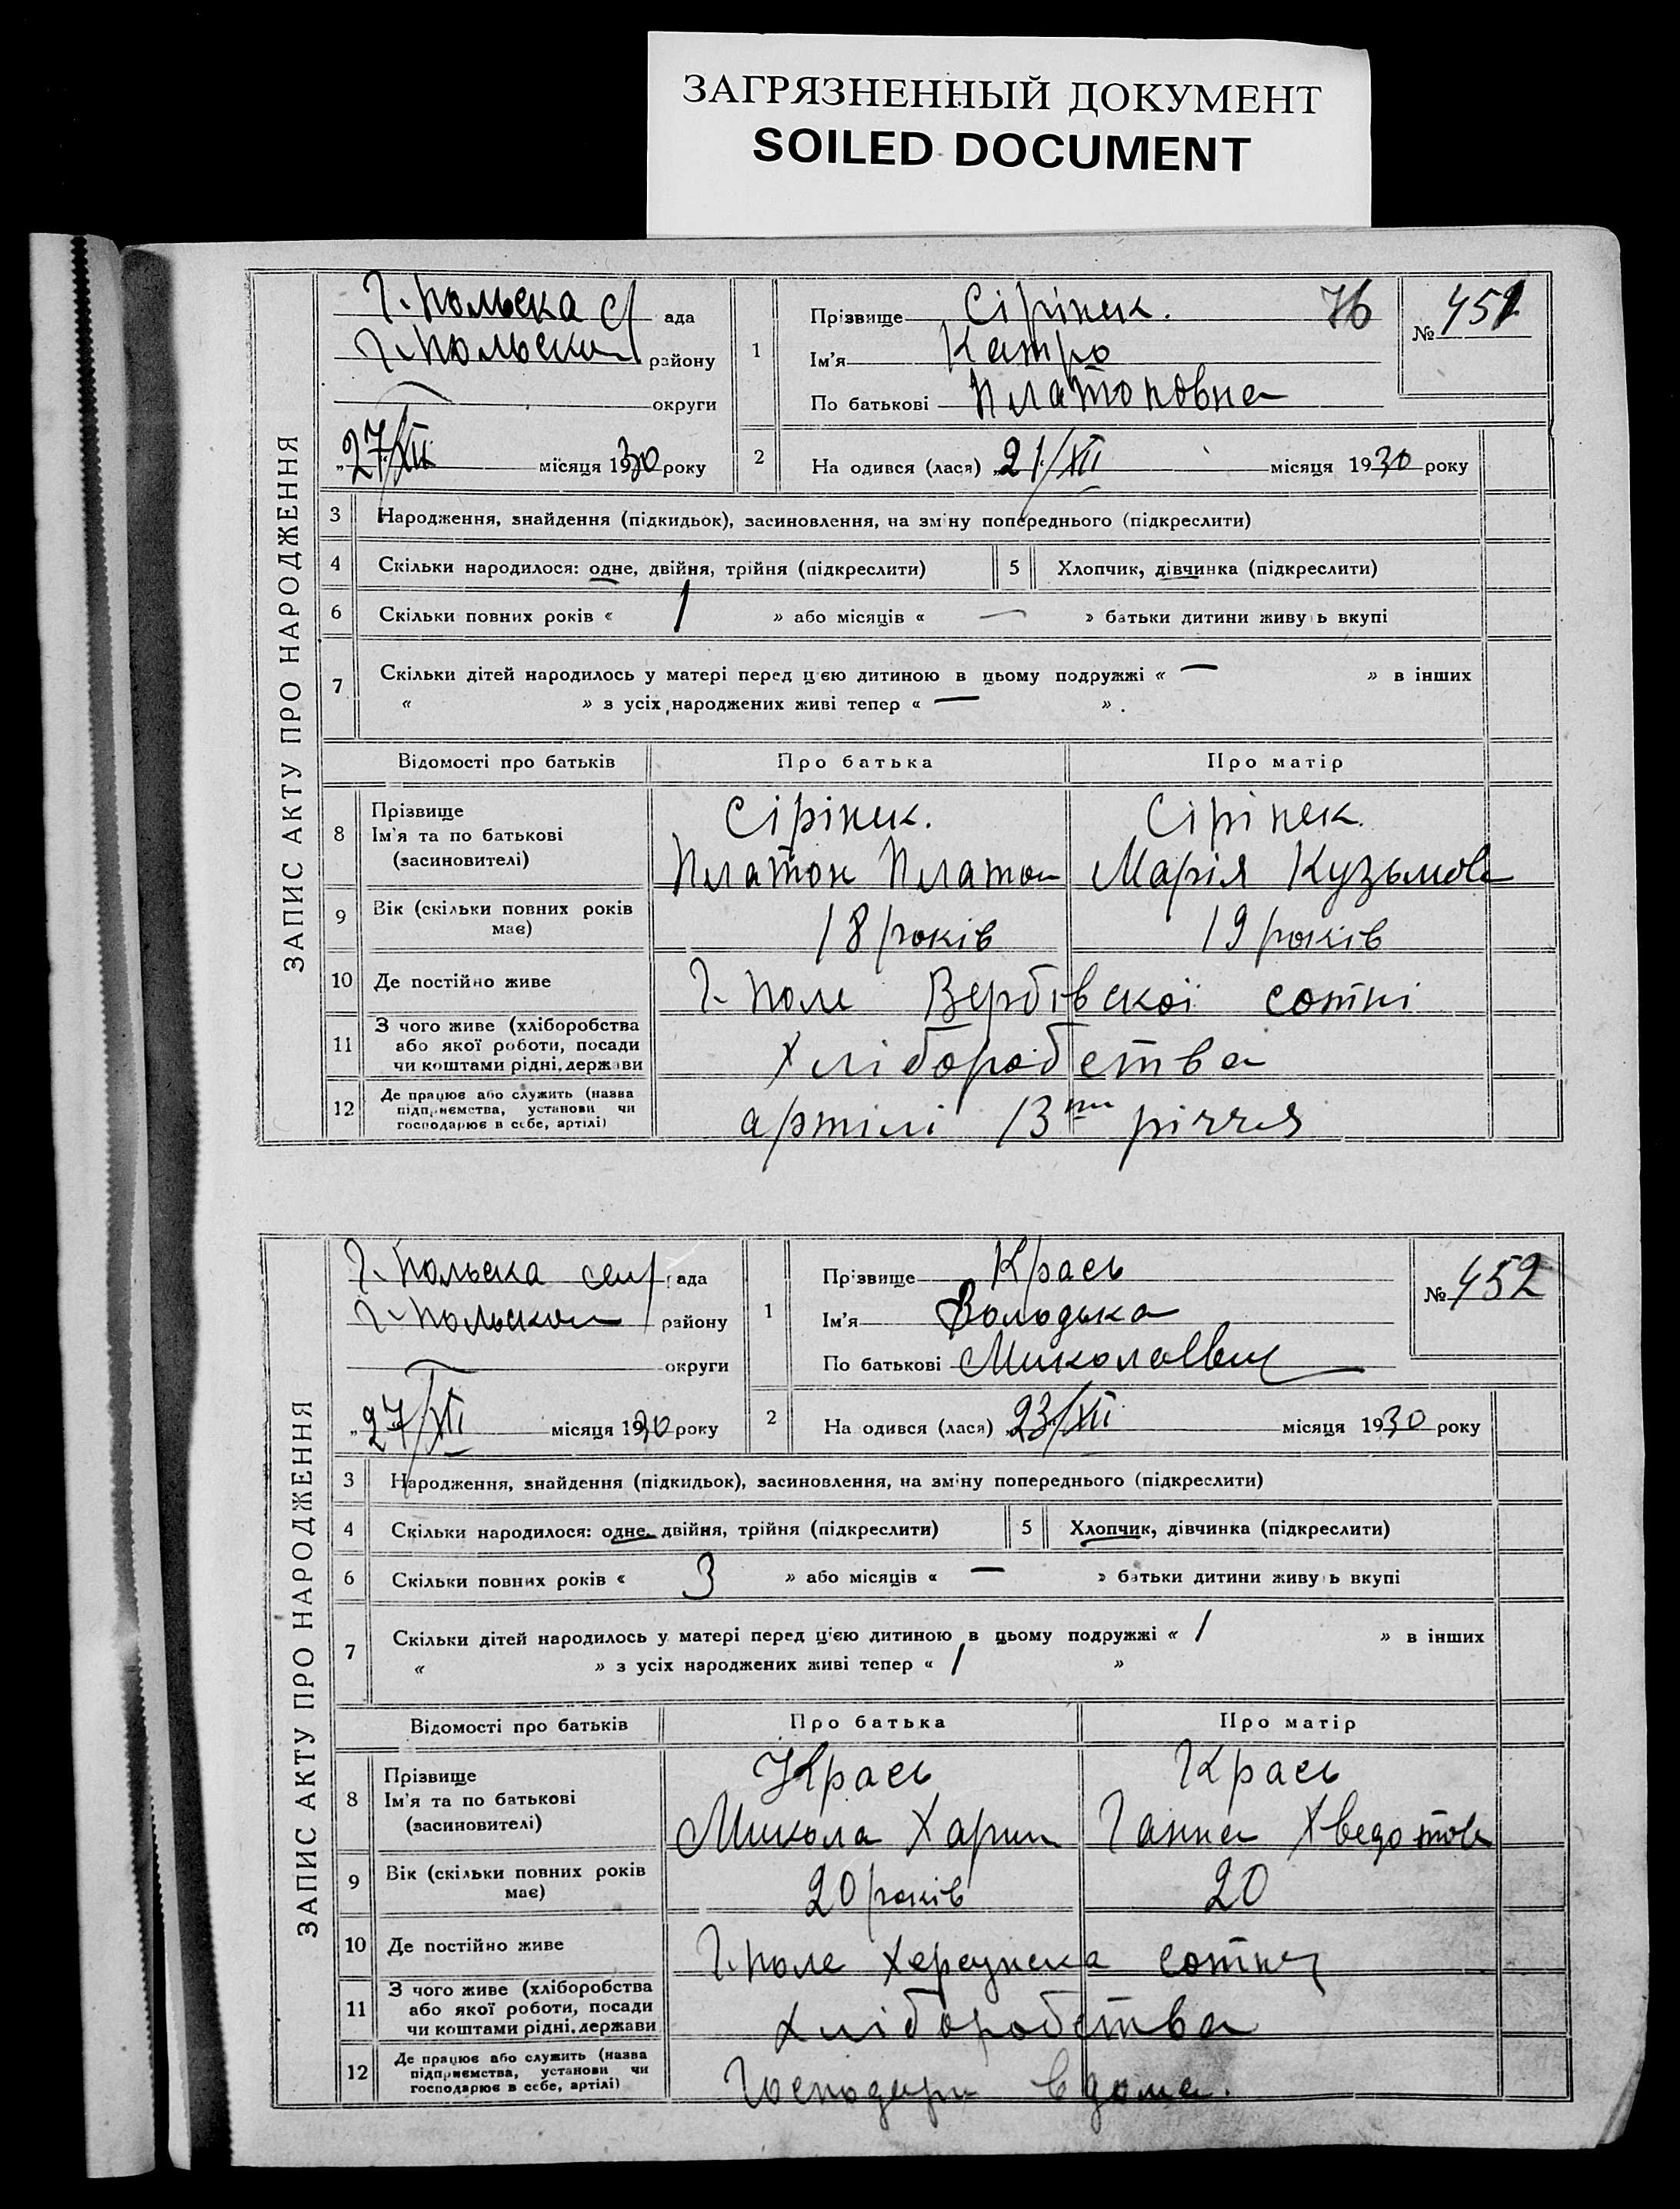 ЗАГРЯЗНЕННЫЙ ДОКУМЕНТ
SOILED DOCUMENT
ЗАПИС АКТУ ПРО НАРОДЖЕННЯ
Г. Польска ада
Г. Польськ району
округи
„27/XII місяця 1930 року
1
Прізвище Сірінек. 76
Ім'я Катро
По батькові Платоновна
№ 451
2 На одився (лася) „21/XII місяця 1930 року
3 Народження, знайдення (підкидьок), засиновлення, на зміну попереднього (підкреслити)
4 Скільки народилося: одне, двійня, трійня (підкреслити) 5 Хлопчик, дівчинка (підкреслити)
6 Скільки повних років « 1 » або місяців « — » батьки дитини живу ь вкупі
7 Скільки дітей народилось у матері перед цією дитиною в цьому подружжі « — » в інших
« » з усіх народжених живі тепер « — » .
Відомості про батьків Про батька Про матір
8 Прізвище
Ім'я та по батькові
(засиновителі)
Сірінек. Сірінек.
Платон Платон Марія Кузьмов
9 Вік (скільки повних років
має)
18 років 19 років
10 Де постійно живе Г. Поле Вербівскої сотні
11 З чого живе (хліборобства
або якої роботи, посади
чи коштами рідні, держави
хліборобства
12 Де працює або служить (назва
підприємства, установи чи
господарює в себе, артілі)
артілі 13 річчя
ЗАПИС АКТУ ПРО НАРОДЖЕННЯ
Г. Польска сел рада
Г. Польськ району
округи
„27/XII місяця 1930 року
1
Прізвище Крась
Ім'я Володька
По батькові
№ 452
2 На одився (лася) „23/XII місяця 1930 року
3 Народження, знайдення (підкидьок), засиновлення, на зміну попереднього (підкреслити)
4 Скільки народилося: одне, двійня, трійня (підкреслити) 5 Хлопчик, дівчинка (підкреслити)
6 Скільки повних років « 3 » або місяців « — » батьки дитини живу ь вкупі
7 Скільки дітей народилось у матері перед цією дитиною в цьому подружжі « 1 » в інших
« » з усіх народжених живі тепер « 1 »
Відомості про батьків Про батька Про матір
8 Прізвище
Ім'я та по батькові
(засиновителі)
Крась Крась
Микола Харит Ганна Хведотов
9 Вік (скільки повних років
має)
20 років 20
10 Де постійно живе Г. Поле Херсунска сотня
11 З чого живе (хліборобства
або якої роботи, посади
чи коштами рідні, держави
хліборобства
12 Де працює або служить (назва
підприємства, установи чи
господарює в себе, артілі)
в дома.